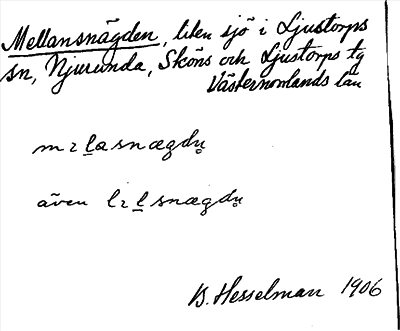 Mellansnägden, liten sjö i Ljustorps
sn, Njurunda, Sköns och Ljustorps tg
Västernorrlands län
även
B. Hesselman 1906